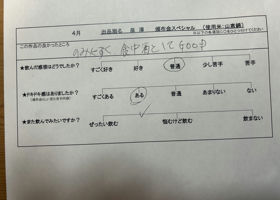 4月 出品酒名 泉澤 頒布会スペシャル （使用米：山恵錦）
この作品の良かったところ
のみやすく 食中酒として GOOD
★飲んだ感想はどうでしたか？
すごく好き 好き 普通 少し苦手 苦手
★ドキドキ感はありましたか？
すごくある ある 普通 あまりない ない
★また飲んでみたいですか？
ぜったい飲む 悩むけど飲む 飲まない